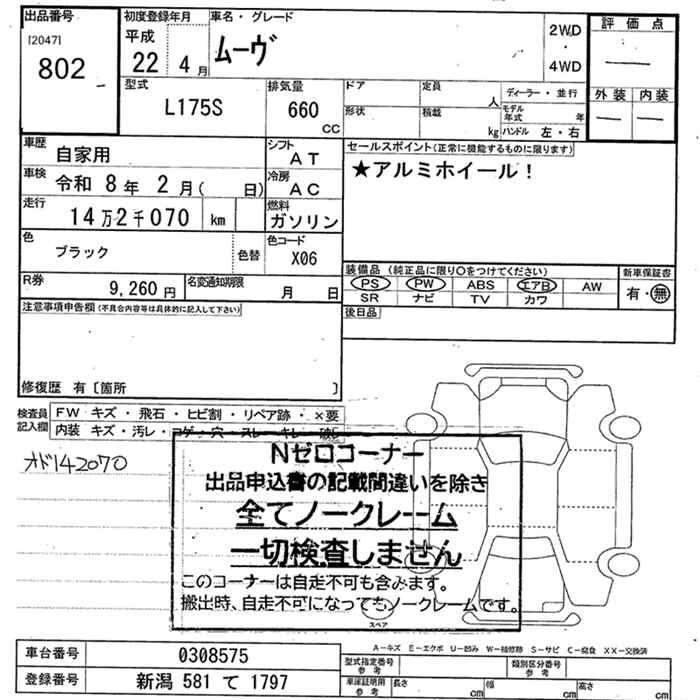 出品番号
[2047]
802
初度登録年月
平成
22 4月
車名・グレード
ムーヴ
2WD
・
4WD
評価点
外装 内装
型式
L175S
排気量
660
CC
ドア
定員
人
形状
積載
kg
ディーラー・並行
モデル年式 年
ハンドル 左・右
車歴
自家用
シフト
AT
車検
令和 8年 2月( 日)
冷房
AC
走行
14万2千070 km
燃料
ガソリン
色
ブラック
色替
色コード
X06
セールスポイント(正常に機能するものに限ります)
★アルミホイール!
R券
9,260円
名変通知期限
月 日
装備品 (純正品に限り○をつけてください)
新車保証書
PS PW ABS エアB AW
有・無
SR ナビ TV カワ
後日品
注意事項申告欄(不具合内容等は具体的に記入して下さい)
修復歴 有〔箇所 〕
検査員記入欄
FW キズ・飛石・ヒビ割・リペア跡・×要
内装 キズ・汚レ・コゲ・穴・スレ・キレ・破レ
オド142070
Nゼロコーナー
出品申込書の記載間違いを除き
全てノークレーム
一切検査しません
このコーナーは自走不可も含みます。
搬出時、自走不可になってもノークレームです。
スペア
A-キズ E-エクボ U-凹み W-補修跡 S-サビ C-腐食 XX-交換済
車台番号
0308575
型式指定番号
参考
類別区分番号
参考
登録番号
新潟 581 て 1797
車庫証明用
参考
長さ cm
幅 cm
高さ cm